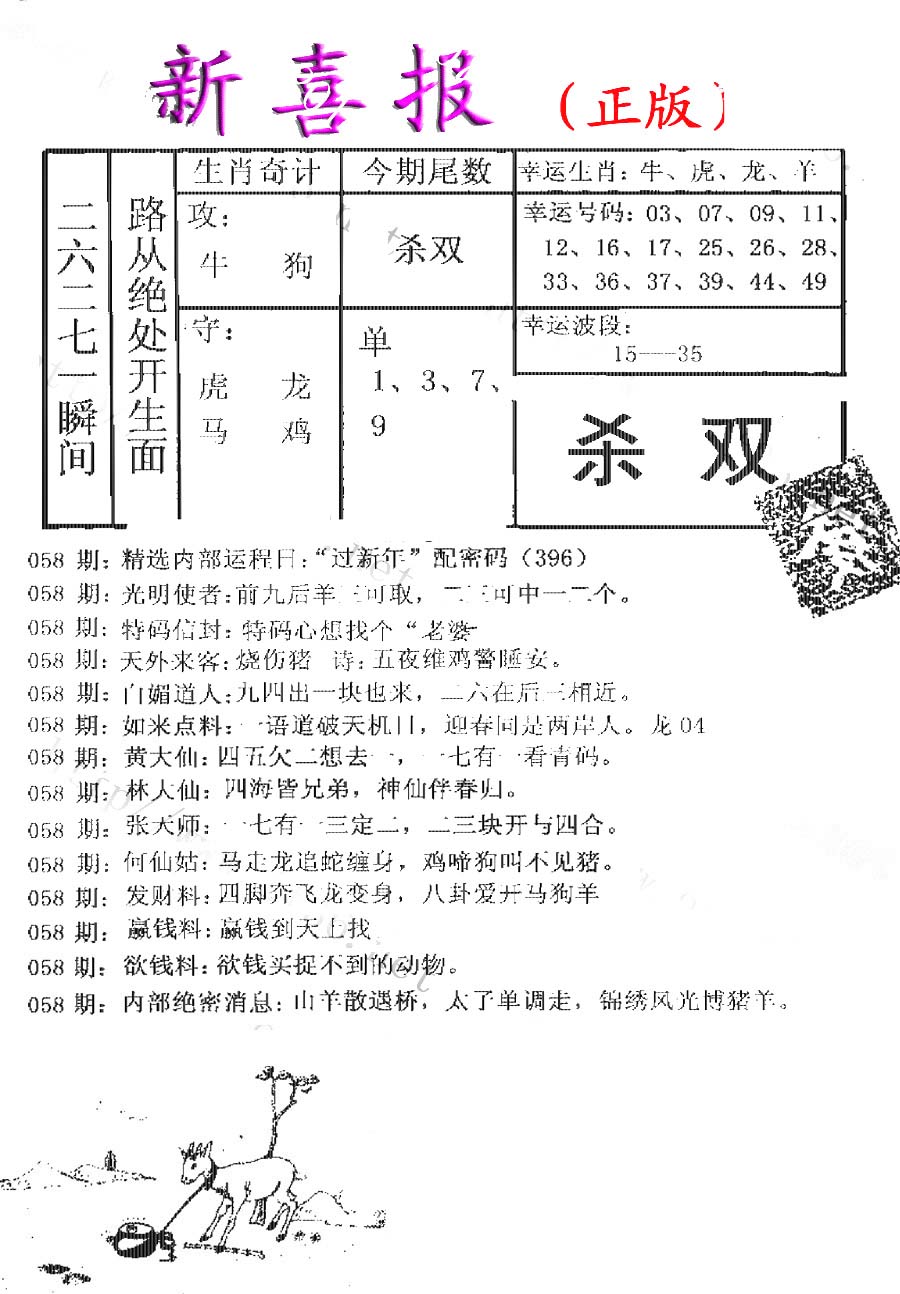 新喜报（正版）
二六二七一瞬间
路从绝处开生面
生肖奇计
攻：
牛 狗
守：
虎 龙
马 鸡
今期尾数
杀双
单
1、3、7、
9
幸运生肖：牛、虎、龙、羊
幸运号码：03、07、09、11、
12、16、17、25、26、28、
33、36、37、39、44、49
幸运波段：
15---35
杀 双
058 期：精选内部运程日：“过新年”配密码（396）
058 期：光明使者：前九后羊三可取，二三可中一二个。
058 期：特码信封：特码心想找个“老婆
058 期：天外来客：烧伤猪 诗：五夜维鸡警睡安。
058 期：白媚道人：九四出一块也来，二六在后三相近。
058 期：如来点料：一语道破天机日，迎春同是两岸人。龙 04
058 期：黄大仙：四五欠二想去一，一七有一看青码。
058 期：林大仙：四海皆兄弟，神仙伴春归。
058 期：张天师：一七有一三定二，二三块开与四合。
058 期：何仙姑：马走龙追蛇缠身，鸡啼狗叫不见猪。
058 期：发财料：四脚奔飞龙变身，八卦爱开马狗羊
058 期：赢钱料：赢钱到天上找
058 期：欲钱料：欲钱买捉不到的动物。
058 期：内部绝密消息：山羊散遇桥，太了单调走，锦绣风光博猪羊。